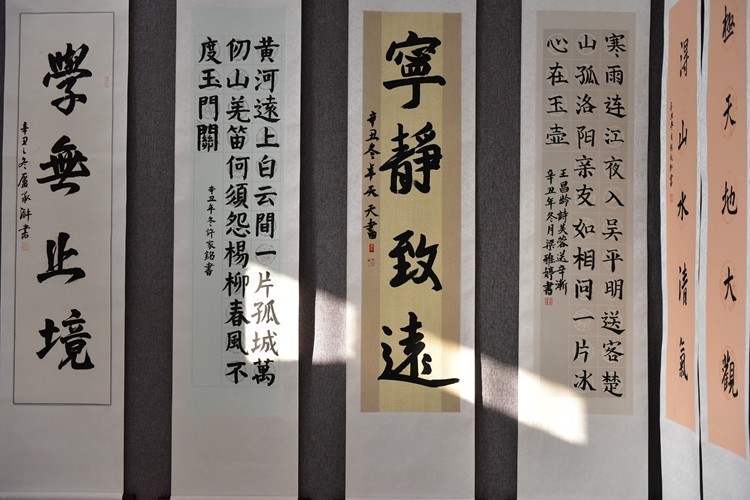 極天地大觀
得山水清氣
寒雨连江夜入吴平明送客楚
山孤洛阳亲友如相问一片冰
心在玉壶
王昌龄詩芙蓉送辛渐
辛丑年冬月梁雅婷書
寧靜致遠
辛丑冬天書
黄河遠上白云間一片孤城萬
仞山羌笛何須怨楊柳春風不
度玉門關
辛丑年冬許家銘書
學無止境
辛丑之冬盧書